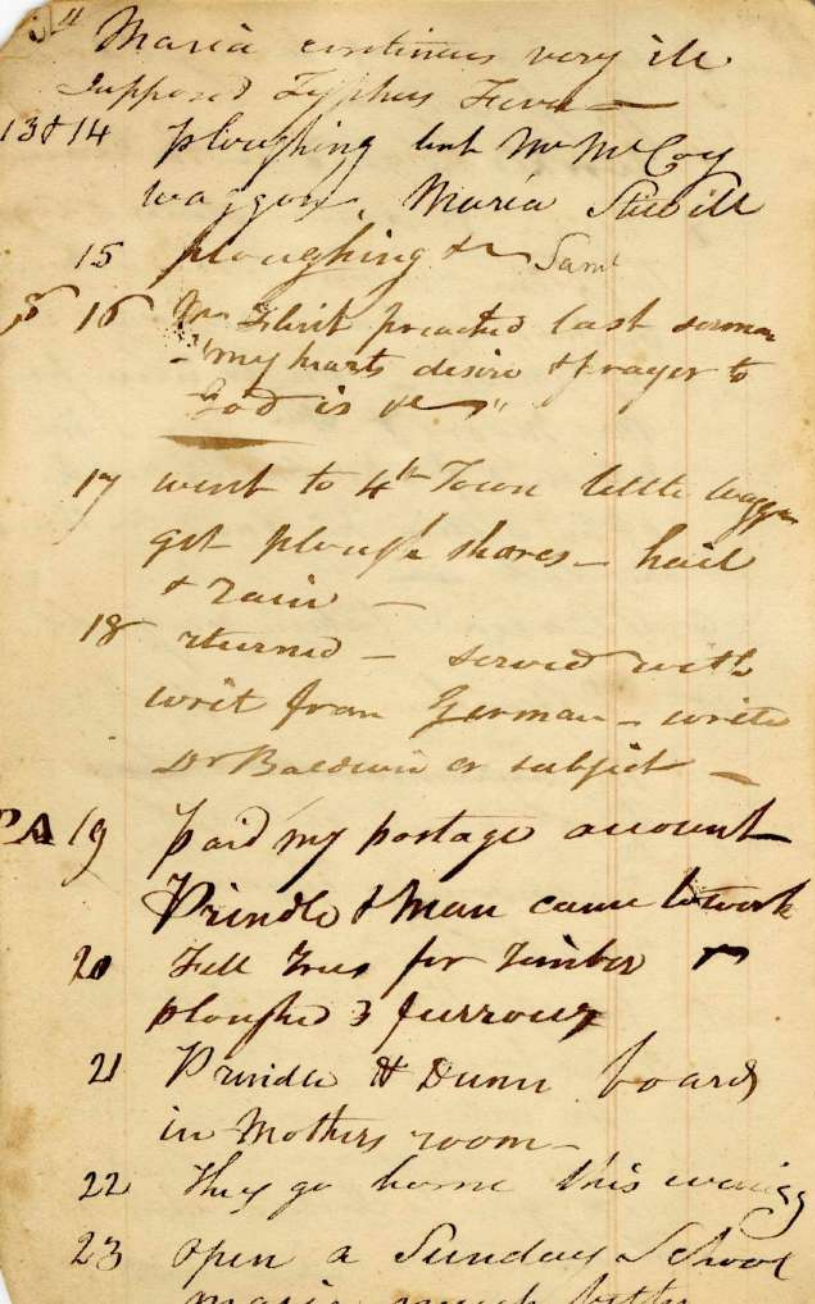 Maria continues very ill
Supposed Typhus Fever —
13 & 14 ploughing lent Mr McCoy
waggon, Maria Still ill
15 ploughing & Saml
S 16 Flint preached last sermon
"my hearts desire & prayer to
God is &c"
17 went to 4th Town little waggon
get plough shares — hail
& rain —
18 returned — served with
writ from German — write
Dr Baldwin on subject —
19 paid my postage account
Prindle & Man came to work
20 Fell Trees for Timber
ploughed 3 furrows
21 Prindle & Dunn board
in Mothers room —
22 they go home this evening
23 open a Sunday School
maria much better